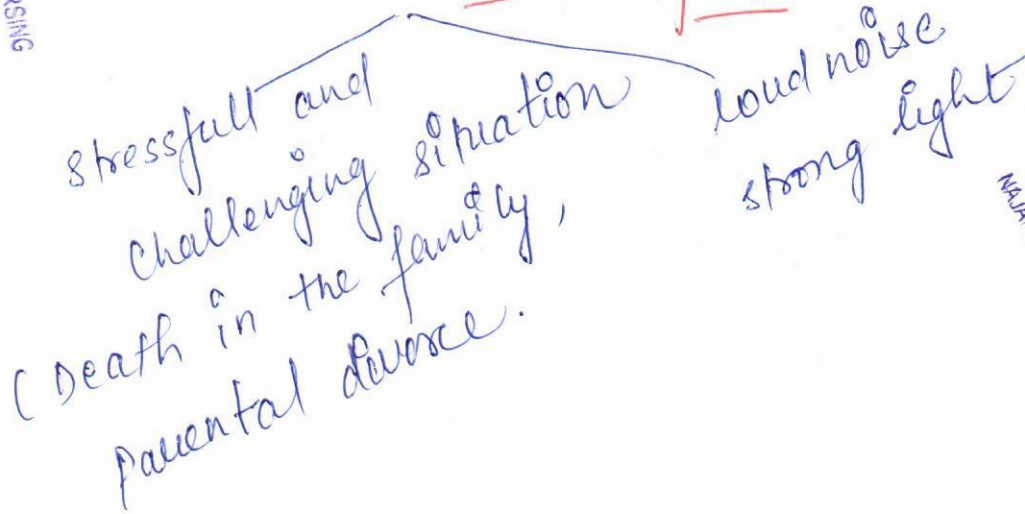 RSING
stressfull and
challenging situation
(Death in the family,
parental divorce.
loud noise
strong light